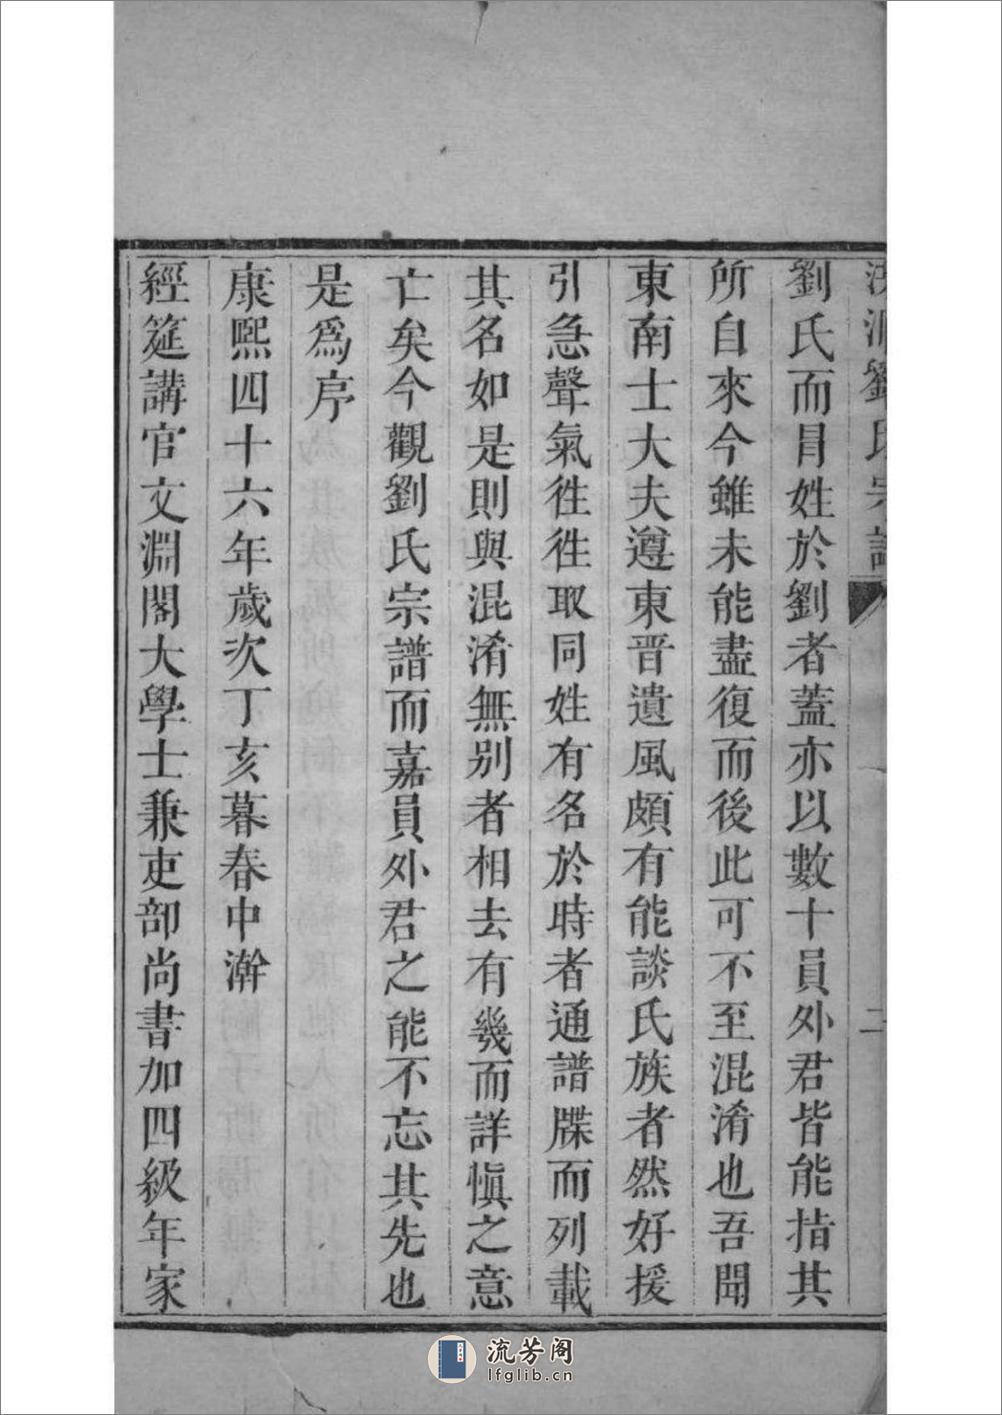 劉氏宗譜
二
劉氏而冒姓於劉者蓋亦以數十員外君皆能指其
所自來今雖未能盡復而後此可不至混淆也吾聞
東南士大夫遵東晋遺風頗有能談氏族者然好援
引急聲氣徃徃取同姓有名於時者通譜牒而列載
其名如是則與混淆無别者相去有幾而詳愼之意
亡矣今觀劉氏宗譜而嘉員外君之能不忘其先也
是爲序
康熙四十六年歲次丁亥暮春中澣
經筵講官文淵閣大學士兼吏部尚書加四級年家
流芳阁
lfglib.cn